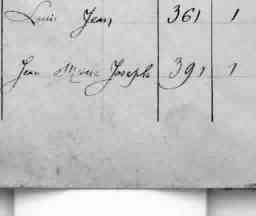 Louis Jean 361 1
Jean Marie Joseph 391 1